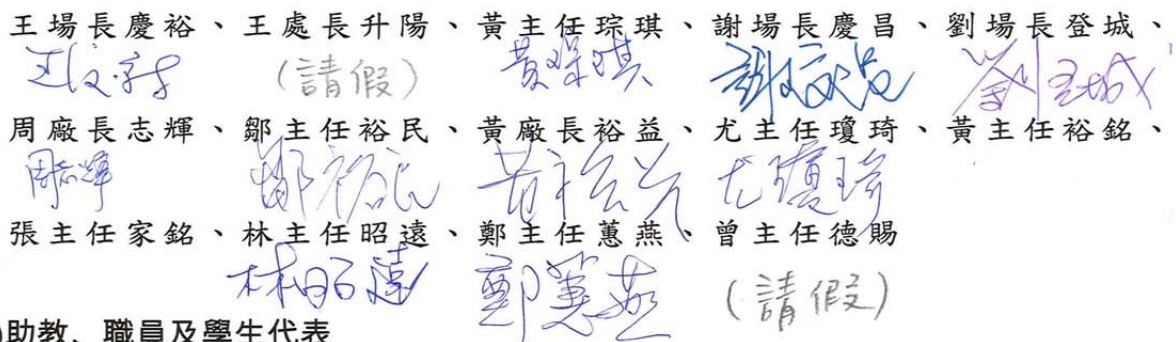 王場長慶裕、王處長升陽、黃主任琮琪、謝場長慶昌、劉場長登城、
王慶裕 (請假) 黃琮琪 謝慶昌 劉登城
周廠長志輝、鄒主任裕民、黃廠長裕益、尤主任瓊琦、黃主任裕銘、
周志輝 鄒裕民 尤瓊琦
張主任家銘、林主任昭遠、鄭主任蕙燕、曾主任德賜
林昭遠 鄭蕙燕 (請假)
助教、職員及學生代表